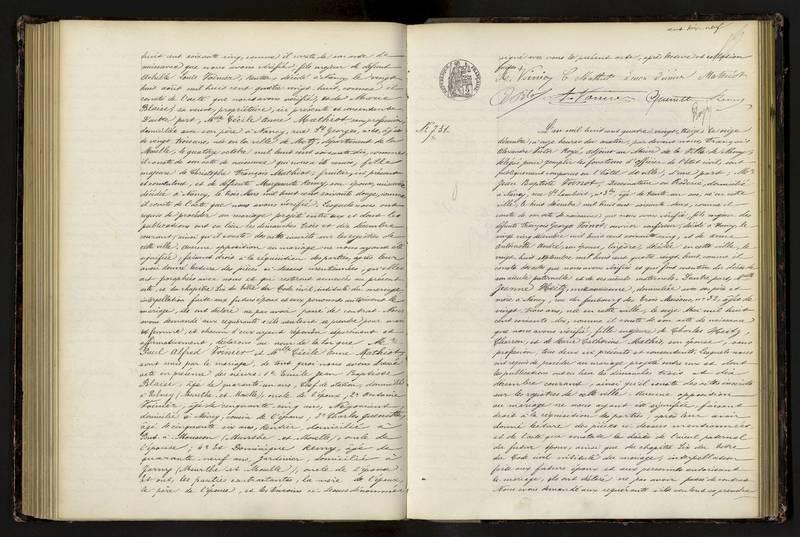 huit cent soixante cinq, comme il conste de son acte de
naissance que nous avons vérifié, fils majeur de défunt
Achille Louis Voinier, rentier, décédé à Nancy le vingt
huit août mil huit cent quatre vingt huit, comme il
conste de l'acte que nous avons vérifié, et de Marie
Blaise, sa veuve, propriétaire, ici présente et consentante
D'autre part, Mlle Cécile Anne Mathiot, sans profession,
domiciliée avec son père à Nancy, rue St Georges, âgée
de vingt trois ans, née en la ville de Metz, département de la
Moselle, le quatorze octobre mil huit cent soixante dix, comme
il conste de son acte de naissance que nous avons vérifié, fille
majeure de Christophe François Mathiot, fruitier, ici présent
et consentant, et de défunte Marguerite Remy, son épouse,
décédée à Nancy, le mil huit cent soixante douze, comme
il conste de l'acte que nous avons vérifié. Lesquels nous ont
requis de procéder au mariage projeté entre eux et dont les
publications ont eu lieu les dimanches trois et dix décembre
courant, ainsi qu'il conste des actes inscrits sur les registres de
cette ville. Aucune opposition au mariage ne nous ayant été
signifiée, faisant droit à la réquisition des parties, après leur
avoir donné lecture des pièces ci dessus mentionnées, qu'elles
ont paraphées avec nous et qui resteront annexées au présent
acte, et du chapitre six du titre du Code civil intitulé du mariage,
interpellation faite aux futurs époux et aux personnes autorisant le
mariage, ils ont déclaré ne pas avoir passé de contrat. Nous
avons demandé aux requérants s'ils veulent se prendre pour mari
et femme, et chacun d'eux ayant répondu séparément et
affirmativement, déclarons au nom de la loi que Mr
Paul Alfred Voinier et Mlle Cécile Anne Mathiot,
sont unis par le mariage, de tout quoi nous avons dressé
acte en présence des sieurs: 1° Emile Jean Baptiste
Blaise, âgé de quarante un ans, Chef de station, domicilié
à (Meurthe et Moselle), oncle de l'époux, 2° Antoine
Voinier, âgé de cinquante cinq ans, Négociant
domicilié à Nancy, cousin de l'époux, 3° Charles
âgé de cinquante six ans, Rentier, domicilié à
Pont à Mousson (Meurthe et Moselle), oncle de
l'épouse; 4° et Dominique Remy, âgé de
quarante neuf ans, Jardinier, domicilié à
Jarny (Meurthe et Moselle), oncle de l'épouse
et ont, les parties contractantes, la mère de l'époux,
le père de l'épouse, et les témoins ci-dessus dénommés
signé avec nous le présent acte, après lecture et
Mathiot
Remy
N° 731.
L'an mil huit cent quatre vingt treize, le seize
décembre, à onze heures du matin, par devant nous, François
Alexandre Victor Roye, adjoint au Maire de la Ville de Nancy
délégué pour remplir les fonctions d'Officier de l'état civil, sont
publiquement comparus en l'hôtel de ville: d'une part, Mr
Jean Baptiste Voinot, Dessinateur en Broderie, domicilié
à Nancy, âgé de trente un ans, né en cette
ville, le huit décembre mil huit cent soixante deux, comme il
conste de son acte de naissance que nous avons vérifié, fils majeur des
défunts François Georges Voinot, décédé à Nancy, le
vingt cinq décembre mil huit cent soixante cinq, et de
son épouse, lingère, décédée en cette ville, le
vingt huit septembre mil huit cent quatre vingt huit, comme il
conste des actes que nous avons vérifiés et qui font mention du décès de
ses aïeuls paternels et maternels. D'autre part, Mlle
Jeanne Hesz, domiciliée avec ses père et
mère à Nancy, rue du faubourg des Trois Maisons, n° 71, âgée de
vingt trois ans, née en cette ville, le mil huit
cent soixante dix, comme il conste de son acte de naissance
que nous avons vérifié, fille majeure de Charles Hesz,
Charron, et de Marie Catherine Mathis, son épouse, sans
profession, tous deux ici présents et consentants. Lesquels nous
ont requis de procéder au mariage projeté entre eux et dont
les publications ont eu lieu les dimanches trois et dix
décembre courant, ainsi qu'il conste des actes inscrits
sur les registres de cette ville. Aucune opposition
au mariage ne nous ayant été signifiée, faisant
droit à la réquisition des parties, après leur avoir
donné lecture des pièces ci dessus mentionnées,
et de l'acte qui constate le décès de l'aïeul paternel
du futur époux, ainsi que du chapitre six du titre
du Code civil intitulé du mariage, interpellation
faite aux futurs époux et aux personnes autorisant
le mariage, ils ont déclaré ne pas avoir passé de contrat
Nous avons demandé aux requérants s'ils veulent se prendre